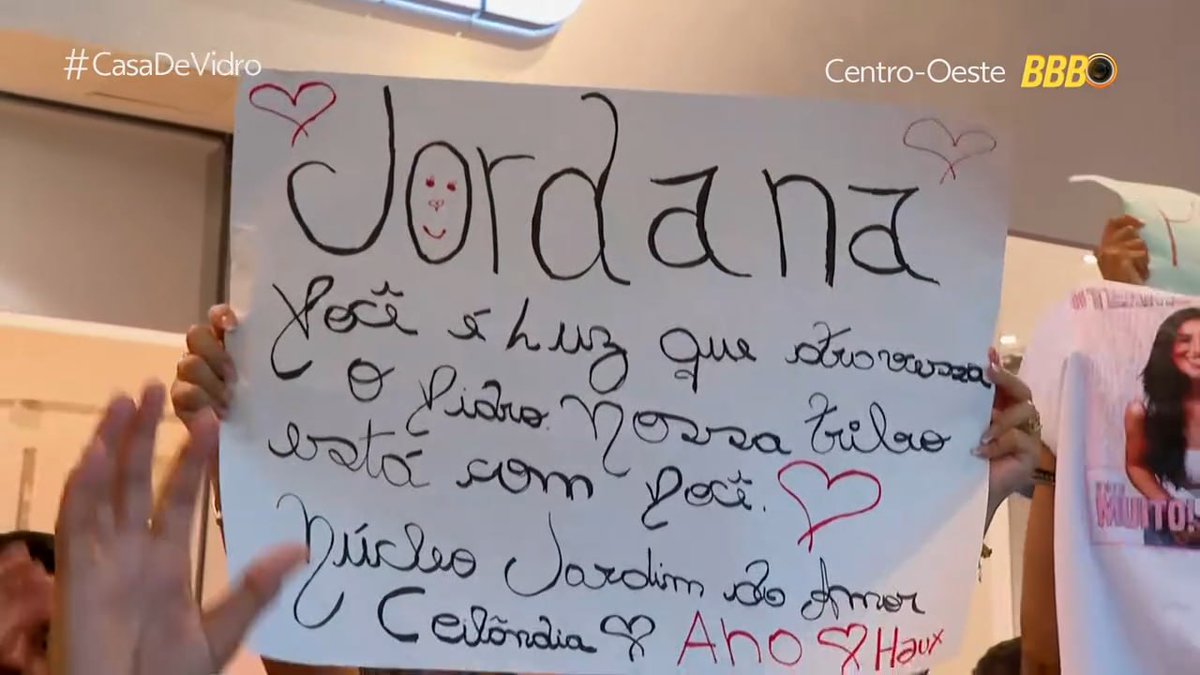 #CasaDeVidro
Centro-Oeste BBB
Jordana
Você é Luz que atravessa
o Vidro. Nossa tribo
está com você.
Núcleo Jardim do Amor
Ceilândia Aho Haux
MUITO!